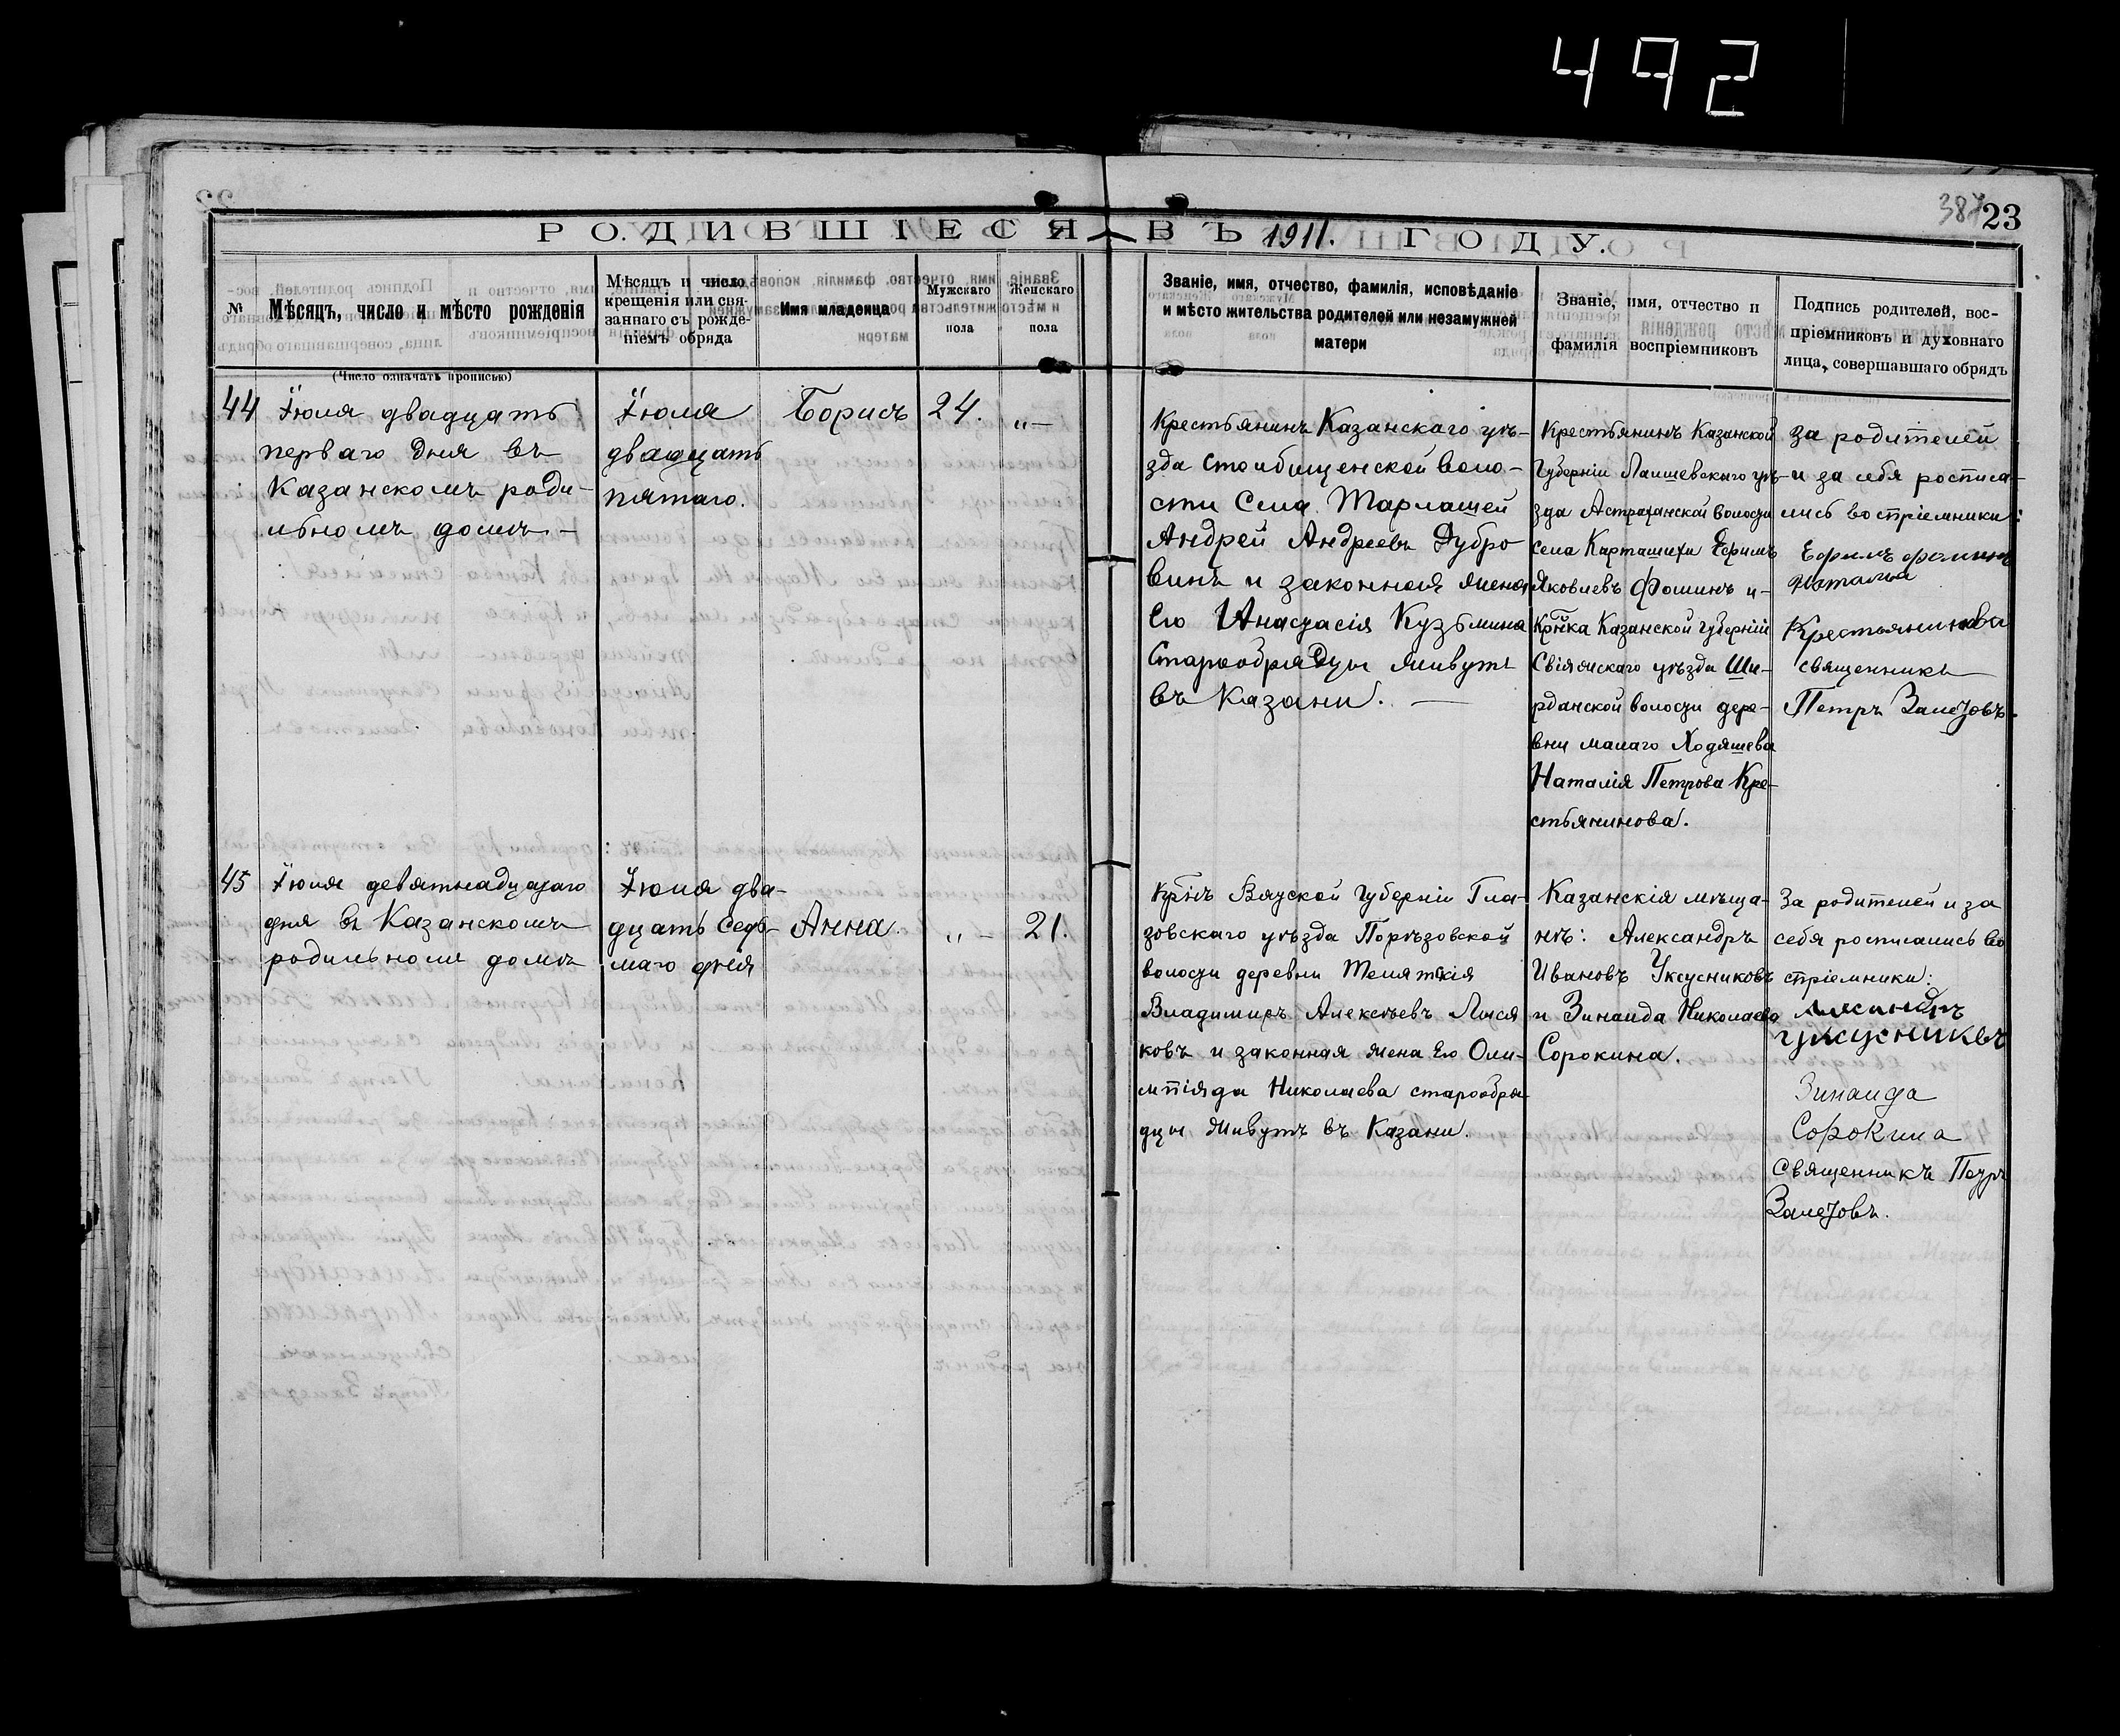 492
387 23
РОДИВШІЕСЯ ВЪ 1911. ГОДУ.
№
Мѣсяцъ, число и мѣсто рожденія
(Число означать прописью)
Мѣсяцъ и число
крещенія или свя-
заннаго съ рожде-
ніемъ обряда
Имя младенца
Мужскаго
пола
Женскаго
пола
Званіе, имя, отчество, фамилія, исповѣданіе
и мѣсто жительства родителей или незамужней
матери
Званіе, имя, отчество и
фамилія воспріемниковъ
Подпись родителей, вос-
пріемниковъ и духовнаго
лица, совершавшаго обрядъ
44
Іюля двадцать
перваго дня въ
Казанскомъ роди-
льномъ домѣ. –
Іюля
двадцать
пятаго.
Борисъ
24.
„ –
Крестьянинъ Казанскаго уѣ-
зда Столбищенской воло-
сти Села Тарлашей
Андрей Андреевъ Дубро
винъ и законная жена
Его Анастасія Кузьмина
Старообрядцы живутъ
въ Казани. –
Крестьянинъ Казанской
Губерніи Лаишевскаго уѣ-
зда Астраханской волости
села Карташихи Ефимъ
Яковлевъ Фоминъ и –
Крѣнка Казанской губерніи
Свіяжскаго уѣзда Ши-
рданской волости дере-
вни малаго Ходяшева
Наталія Петрова Кре-
стьянинова.
За родителей
и за себя росписа-
лись воспріемники:
Ефимъ Фоминъ
Наталья
Крестьянинова
священникъ
Петръ Залетовъ.
45
Іюля девятнадцатаго
дня въ Казанскомъ
родильномъ домѣ
Іюля два-
дцать Седь-
маго дня
Анна.
„ –
21.
Крѣнъ Вятской Губерніи Гла-
зовскаго уѣзда Порѣзовской
волости деревни
Владимиръ Алексѣевъ Лыся
ковъ и законная жена Его Оли-
мпіяда Николаева старообря
дцы живутъ въ Казани.
Казанскія мѣща-
нѣ: Александръ
Ивановъ Уксусниковъ
и Зинаида Николаева
Сорокина.
За родителей и за
себя росписались во
спріемники:
Уксусниквъ
Зинаида
Сорокина
Священникъ Петръ
Залетовъ.